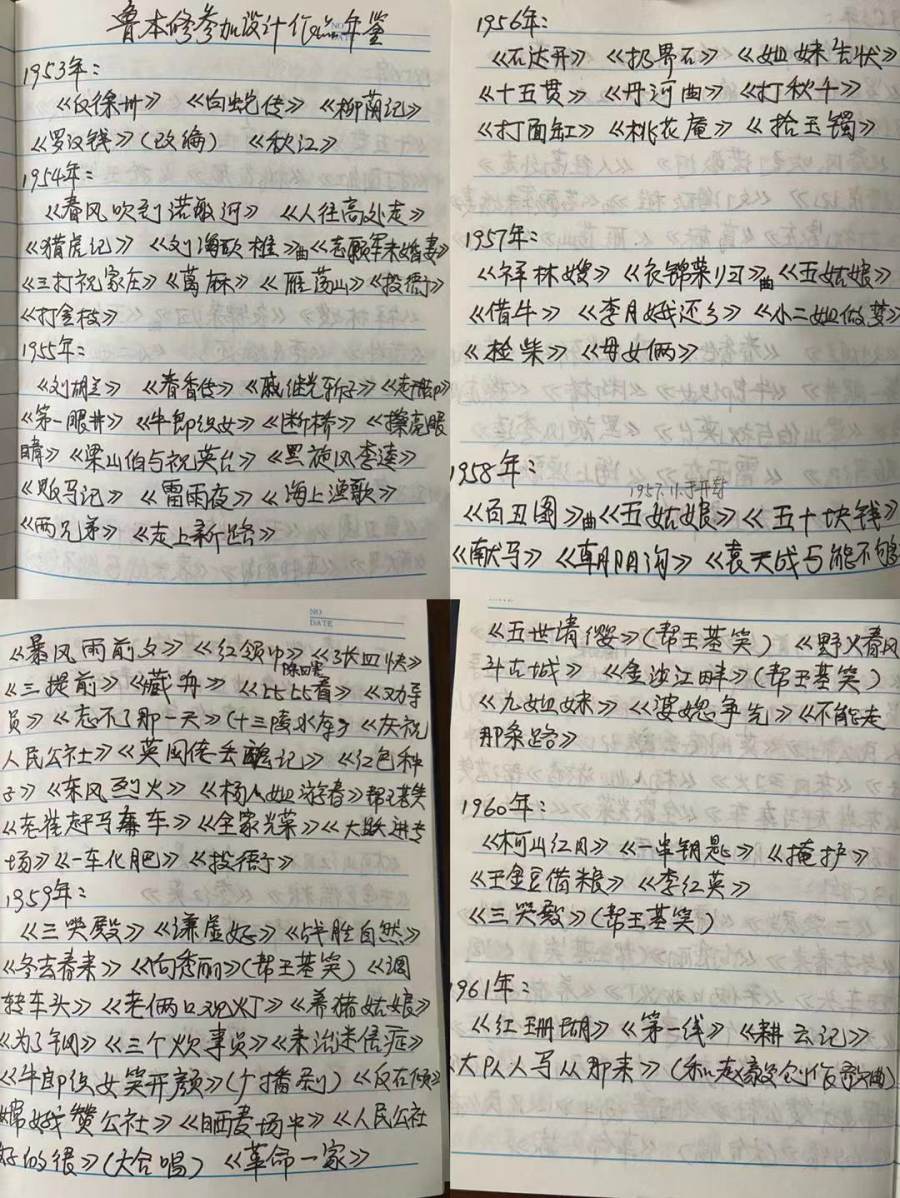 鲁本修参加设计作品年鉴
1953年：
《收徐州》 《白蛇传》 《柳荫记》
《罗汉钱》(改编) 《秋江》
1954年：
《春风吹到诺敏河》 《人往高处走》
《猎虎记》 《刘海砍樵》曲《志愿军未婚妻》
《三打祝家庄》《葛麻》《雁荡山》《投衙》
《打金枝》
1955年：
《刘胡兰》 《春香传》《戚继光斩子》《走雪山》
《第一眼井》《牛郎织女》《断桥》《擦亮眼
睛》《梁山伯与祝英台》《黑旋风李逵》
《贩马记》 《雷雨夜》《海上渔歌》
《两兄弟》 《走上新路》
1956年：
《石达开》 《扔界石》 《姐妹告状》
《十五贯》《丹河曲》《打秋千》
《打面缸》《桃花庵》《拾玉镯》
1957年：
《祥林嫂》《衣锦荣归》曲《五姑娘》
《借牛》《李月娥还乡》《小二姐做梦》
《捡柴》《母女俩》
1958年：
1957.11.于开封
《百丑图》曲《五姑娘》《五十块钱》
《献马》《朝阳沟》《袁天成与能不够》
NO
DATE
《暴风雨前夕》《红领巾》《张四快》
《三提前》《藏舟》《比比看》《劝导
员》《忘不了那一天》(十三陵水库)《庆祝
人民公社》《英国佬丢醜记》《红色种
子》《东风烈火》《杨八姐游春》帮王基笑
《老崔赶马车》《全家光荣》《大跃进专
场》《一车化肥》《投衙》
1959年：
《三哭殿》《谦虚好》《战胜自然》
《冬去春来》《向秀丽》(帮王基笑)《调
转车头》《老俩口观灯》《养猪姑娘》
《为了钢》《三个炊事员》《来治迷信症》
《牛郎织女笑开颜》(广播剧)《反右倾》
嫦娥赞公社》《晒麦场中》《人民公社
好的很》(大合唱)《革命一家》
《五世请缨》(帮王基笑)《野火春风
斗古城》《金沙江畔》(帮王基笑)
《九姐妹》《婆媳争先》《不能走
那条路》
1960年：
《柯山红日》《一串钥匙》《掩护》
《王金豆借粮》《李红英》
《三哭殿》(帮王基笑)
1961年：
《红珊瑚》《第一线》《耕云记》
大队人马从那来》(和赵籙安创作歌曲)